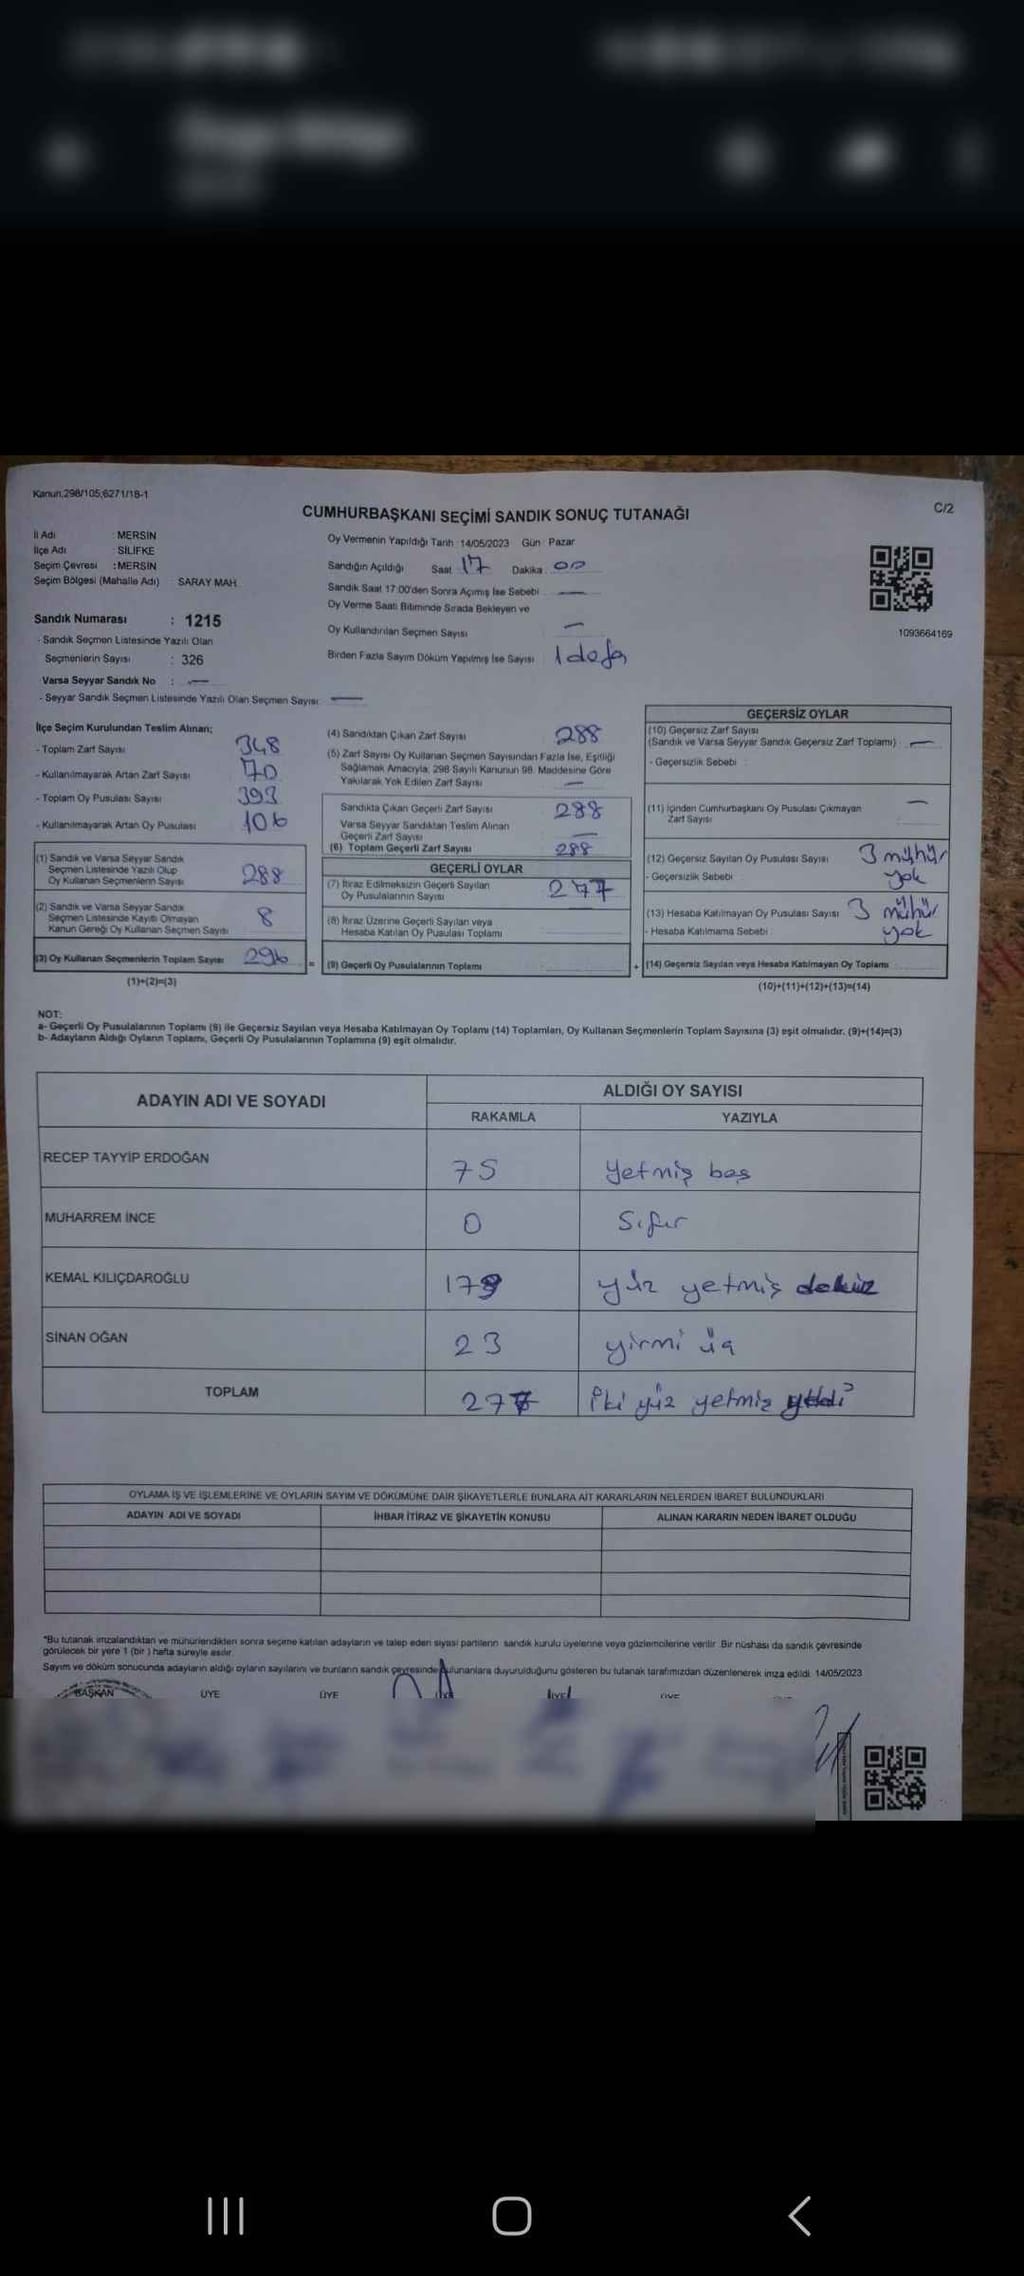 Kanun.298/105;6271/18-1
C/2
CUMHURBAŞKANI SEÇİMİ SANDIK SONUÇ TUTANAĞI
İl Adı : MERSİN
İlçe Adı : SİLİFKE
Seçim Çevresi : MERSİN
Seçim Bölgesi (Mahalle Adı) SARAY MAH.
Sandık Numarası : 1215
- Sandık Seçmen Listesinde Yazılı Olan
Seçmenlerin Sayısı : 326
Varsa Seyyar Sandık No : —
- Seyyar Sandık Seçmen Listesinde Yazılı Olan Seçmen Sayısı —
Oy Vermenin Yapıldığı Tarih : 14/05/2023 Gün : Pazar
Sandığın Açıldığı Saat 17 Dakika 00
Sandık Saat 17:00'den Sonra Açımış İse Sebebi —
Oy Verme Saati Bitiminde Sırada Bekleyen ve
Oy Kullandırılan Seçmen Sayısı —
Birden Fazla Sayım Döküm Yapılmış İse Sayısı 1 defa
1093664169
İlçe Seçim Kurulundan Teslim Alınan;
- Toplam Zarf Sayısı 348
- Kullanılmayarak Artan Zarf Sayısı 70
- Toplam Oy Pusulası Sayısı 393
- Kullanılmayarak Artan Oy Pusulası 106
(1) Sandık ve Varsa Seyyar Sandık
Seçmen Listesinde Yazılı Olup
Oy Kullanan Seçmenlerin Sayısı 288
(2) Sandık ve Varsa Seyyar Sandık
Seçmen Listesinde Kayıtlı Olmayan
Kanun Gereği Oy Kullanan Seçmen Sayısı 8
(3) Oy Kullanan Seçmenlerin Toplam Sayısı 296
(1)+(2)=(3)
(4) Sandıktan Çıkan Zarf Sayısı 288
(5) Zarf Sayısı Oy Kullanan Seçmen Sayısından Fazla İse, Eşitliği
Sağlamak Amacıyla; 298 Sayılı Kanunun 98. Maddesine Göre
Yakılarak Yok Edilen Zarf Sayısı —
Sandıkta Çıkan Geçerli Zarf Sayısı 288
Varsa Seyyar Sandıktan Teslim Alınan
Geçerli Zarf Sayısı —
(6) Toplam Geçerli Zarf Sayısı 288
GEÇERLİ OYLAR
(7) İtiraz Edilmeksizin Geçerli Sayılan
Oy Pusulalarının Sayısı 277
(8) İtiraz Üzerine Geçerli Sayılan veya
Hesaba Katılan Oy Pusulası Toplamı
(9) Geçerli Oy Pusulalarının Toplamı
GEÇERSİZ OYLAR
(10) Geçersiz Zarf Sayısı
(Sandık ve Varsa Seyyar Sandık Geçersiz Zarf Toplamı) —
- Geçersizlik Sebebi :
(11) İçinden Cumhurbaşkanı Oy Pusulası Çıkmayan —
Zarf Sayısı
(12) Geçersiz Sayılan Oy Pusulası Sayısı 3 mühür
- Geçersizlik Sebebi : yok
(13) Hesaba Katılmayan Oy Pusulası Sayısı 3 mühür
- Hesaba Katılmama Sebebi : yok
(14) Geçersiz Sayılan veya Hesaba Katılmayan Oy Toplamı
(10)+(11)+(12)+(13)=(14)
NOT:
a- Geçerli Oy Pusulalarının Toplamı (9) ile Geçersiz Sayılan veya Hesaba Katılmayan Oy Toplamı (14) Toplamları, Oy Kullanan Seçmenlerin Toplam Sayısına (3) eşit olmalıdır. (9)+(14)=(3)
b- Adayların Aldığı Oyların Toplamı, Geçerli Oy Pusulalarının Toplamına (9) eşit olmalıdır.
ADAYIN ADI VE SOYADI
ALDIĞI OY SAYISI
RAKAMLA YAZIYLA
RECEP TAYYİP ERDOĞAN 75 Yetmiş beş
MUHARREM İNCE 0 Sıfır
KEMAL KILIÇDAROĞLU 179 yüz yetmiş dokuz
SİNAN OĞAN 23 yirmi üç
TOPLAM 277 iki yüz yetmiş yedi
OYLAMA İŞ VE İŞLEMLERİNE VE OYLARIN SAYIM VE DÖKÜMÜNE DAİR ŞİKAYETLERLE BUNLARA AİT KARARLARIN NELERDEN İBARET BULUNDUKLARI
ADAYIN ADI VE SOYADI İHBAR İTİRAZ VE ŞİKAYETİN KONUSU ALINAN KARARIN NEDEN İBARET OLDUĞU
*Bu tutanak imzalandıktan ve mühürlendikten sonra seçime katılan adayların ve talep eden siyasi partilerin sandık kurulu üyelerine veya gözlemcilerine verilir. Bir nüshası da sandık çevresinde
görülecek bir yere 1 (bir ) hafta süreyle asılır.
Sayım ve döküm sonucunda adayların aldığı oyların sayılarını ve bunların sandık çevresinde bulunanlara duyurulduğunu gösteren bu tutanak tarafımızdan düzenlenerek imza edildi. 14/05/2023
BAŞKAN ÜYE ÜYE ÜYE ÜYE ÜYE